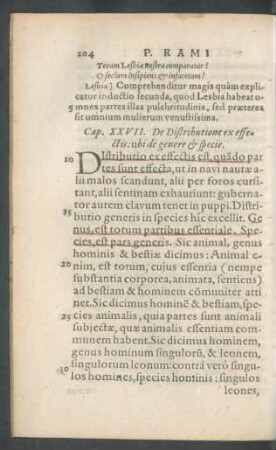 204 P. RAMI
Tecum Lesbia nostra comparatur?
O seclum insipiens & infacetum?
Lesbia] Comprehenditur magis quàm expli-
catur inductio secunda, quòd Lesbia habeat o-
5 mnes partes illas pulchritudinis, sed præterea
sit omnium mulierum venustissima.
Cap. XXVII. De Distributione ex effe-
ctis: ubi de genere & specie.
10 DIstributio ex effectis est, quãdo par
tes sunt effecta, ut in navi nautæ a-
lii malos scandunt, alii per foros cursi-
tant, alii sentinam exhauriunt: guberna-
tor autem clavum tenet in puppi. Distri-
15 butio generis in species hîc excellit. Ge
nus, est totum partibus essentiale. Spe-
cies, est pars generis. Sic animal, genus
hominis & bestiæ dicimus: Animal e-
nim, est totum, cujus essentia (nempe
20 substantia corporea, animata, sentiens)
ad bestiam & hominem cõmuniter atti
net. Sic dicimus hominẽ & bestiam, spe-
cies animalis, quia partes sunt animali
subjectæ, quæ animalis essentiam com-
25 munem habent. Sic dicimus hominem,
genus hominum singulorũ, & leonem,
singulorum leonum: contrà verò singu-
30 los homines, species hominis: singulos
leones,